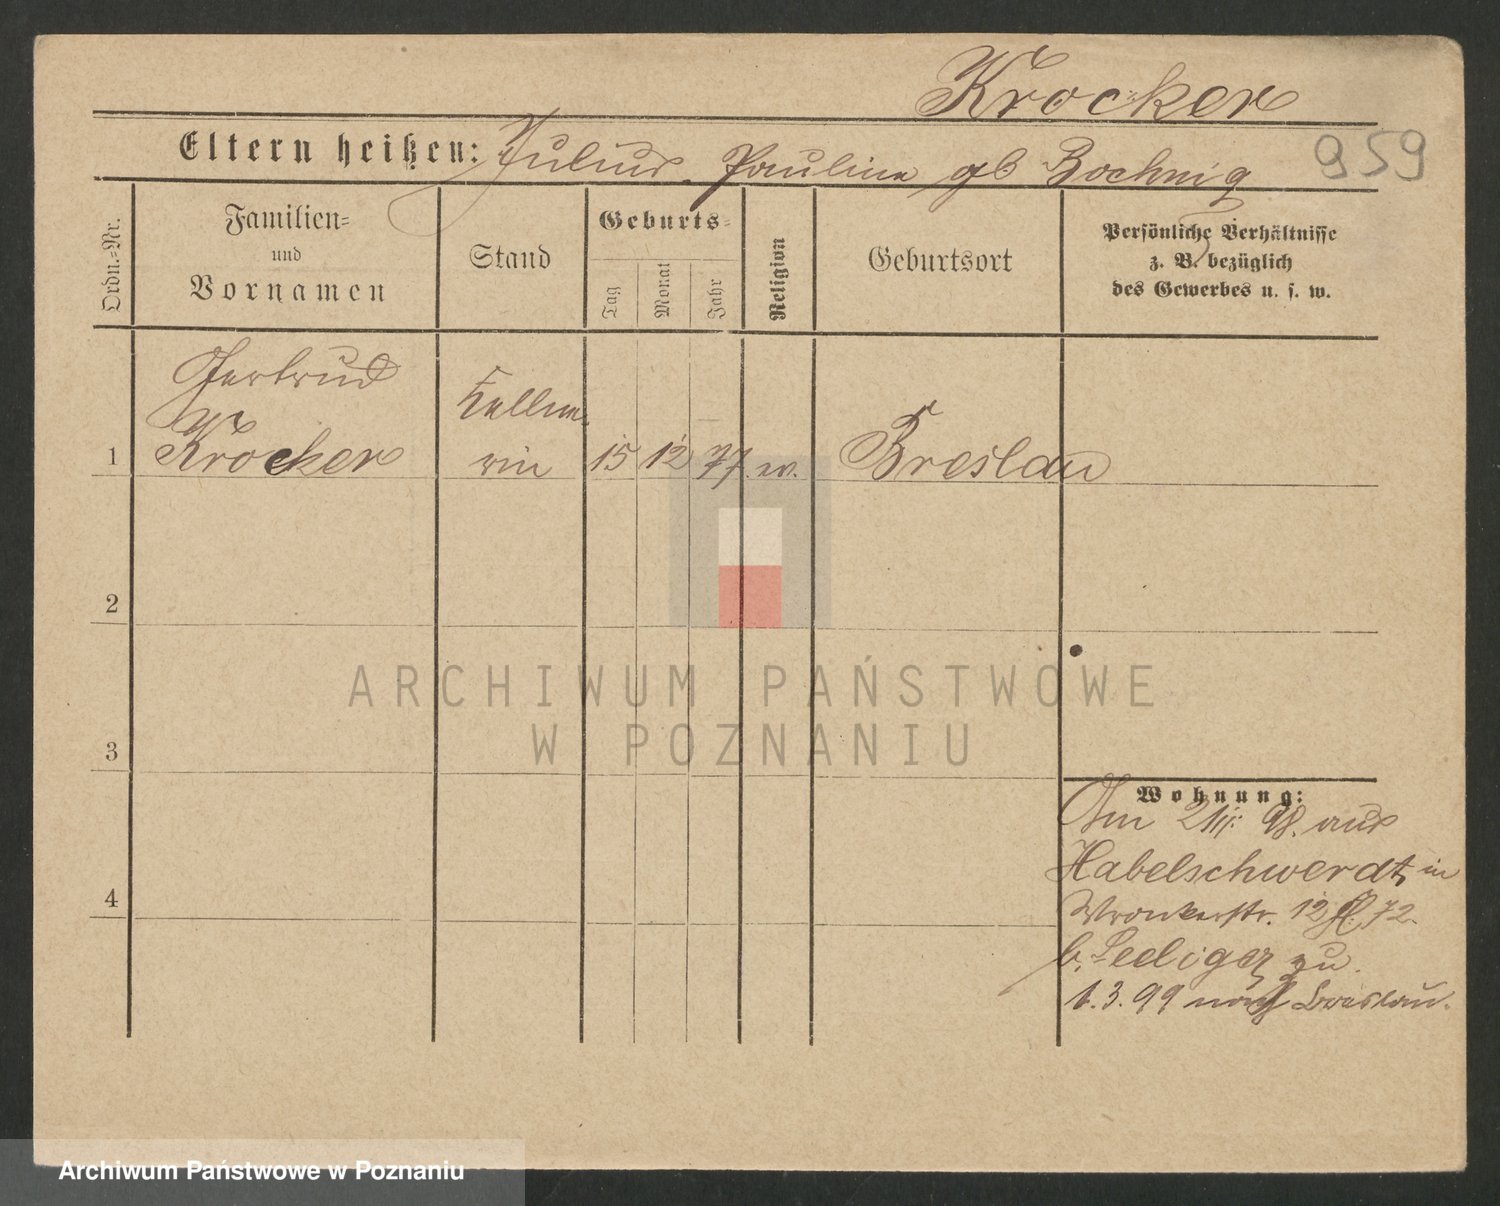 Krocker
Eltern heißen: Julius, Pauline gb Bochnig
959
Ordn.-Nr.
Familien-
und
Vornamen
Stand
Geburts-
Tag
Monat
Jahr
Religion
Geburtsort
Persönliche Verhältnisse
z. B. bezüglich
des Gewerbes u. s. w.
Gertrud
Kellne-
1 Krocker rin 15 12 77. Breslau
2
3
4
ARCHIWUM PAŃSTWOWE
W POZNANIU
Wohnung:
Am 98. aus
Habelschwerdt, in
Wronkerstr. 12 72.
b. Lediger zu.
1.3.99 nach Breslau.
Archiwum Państwowe w Poznaniu